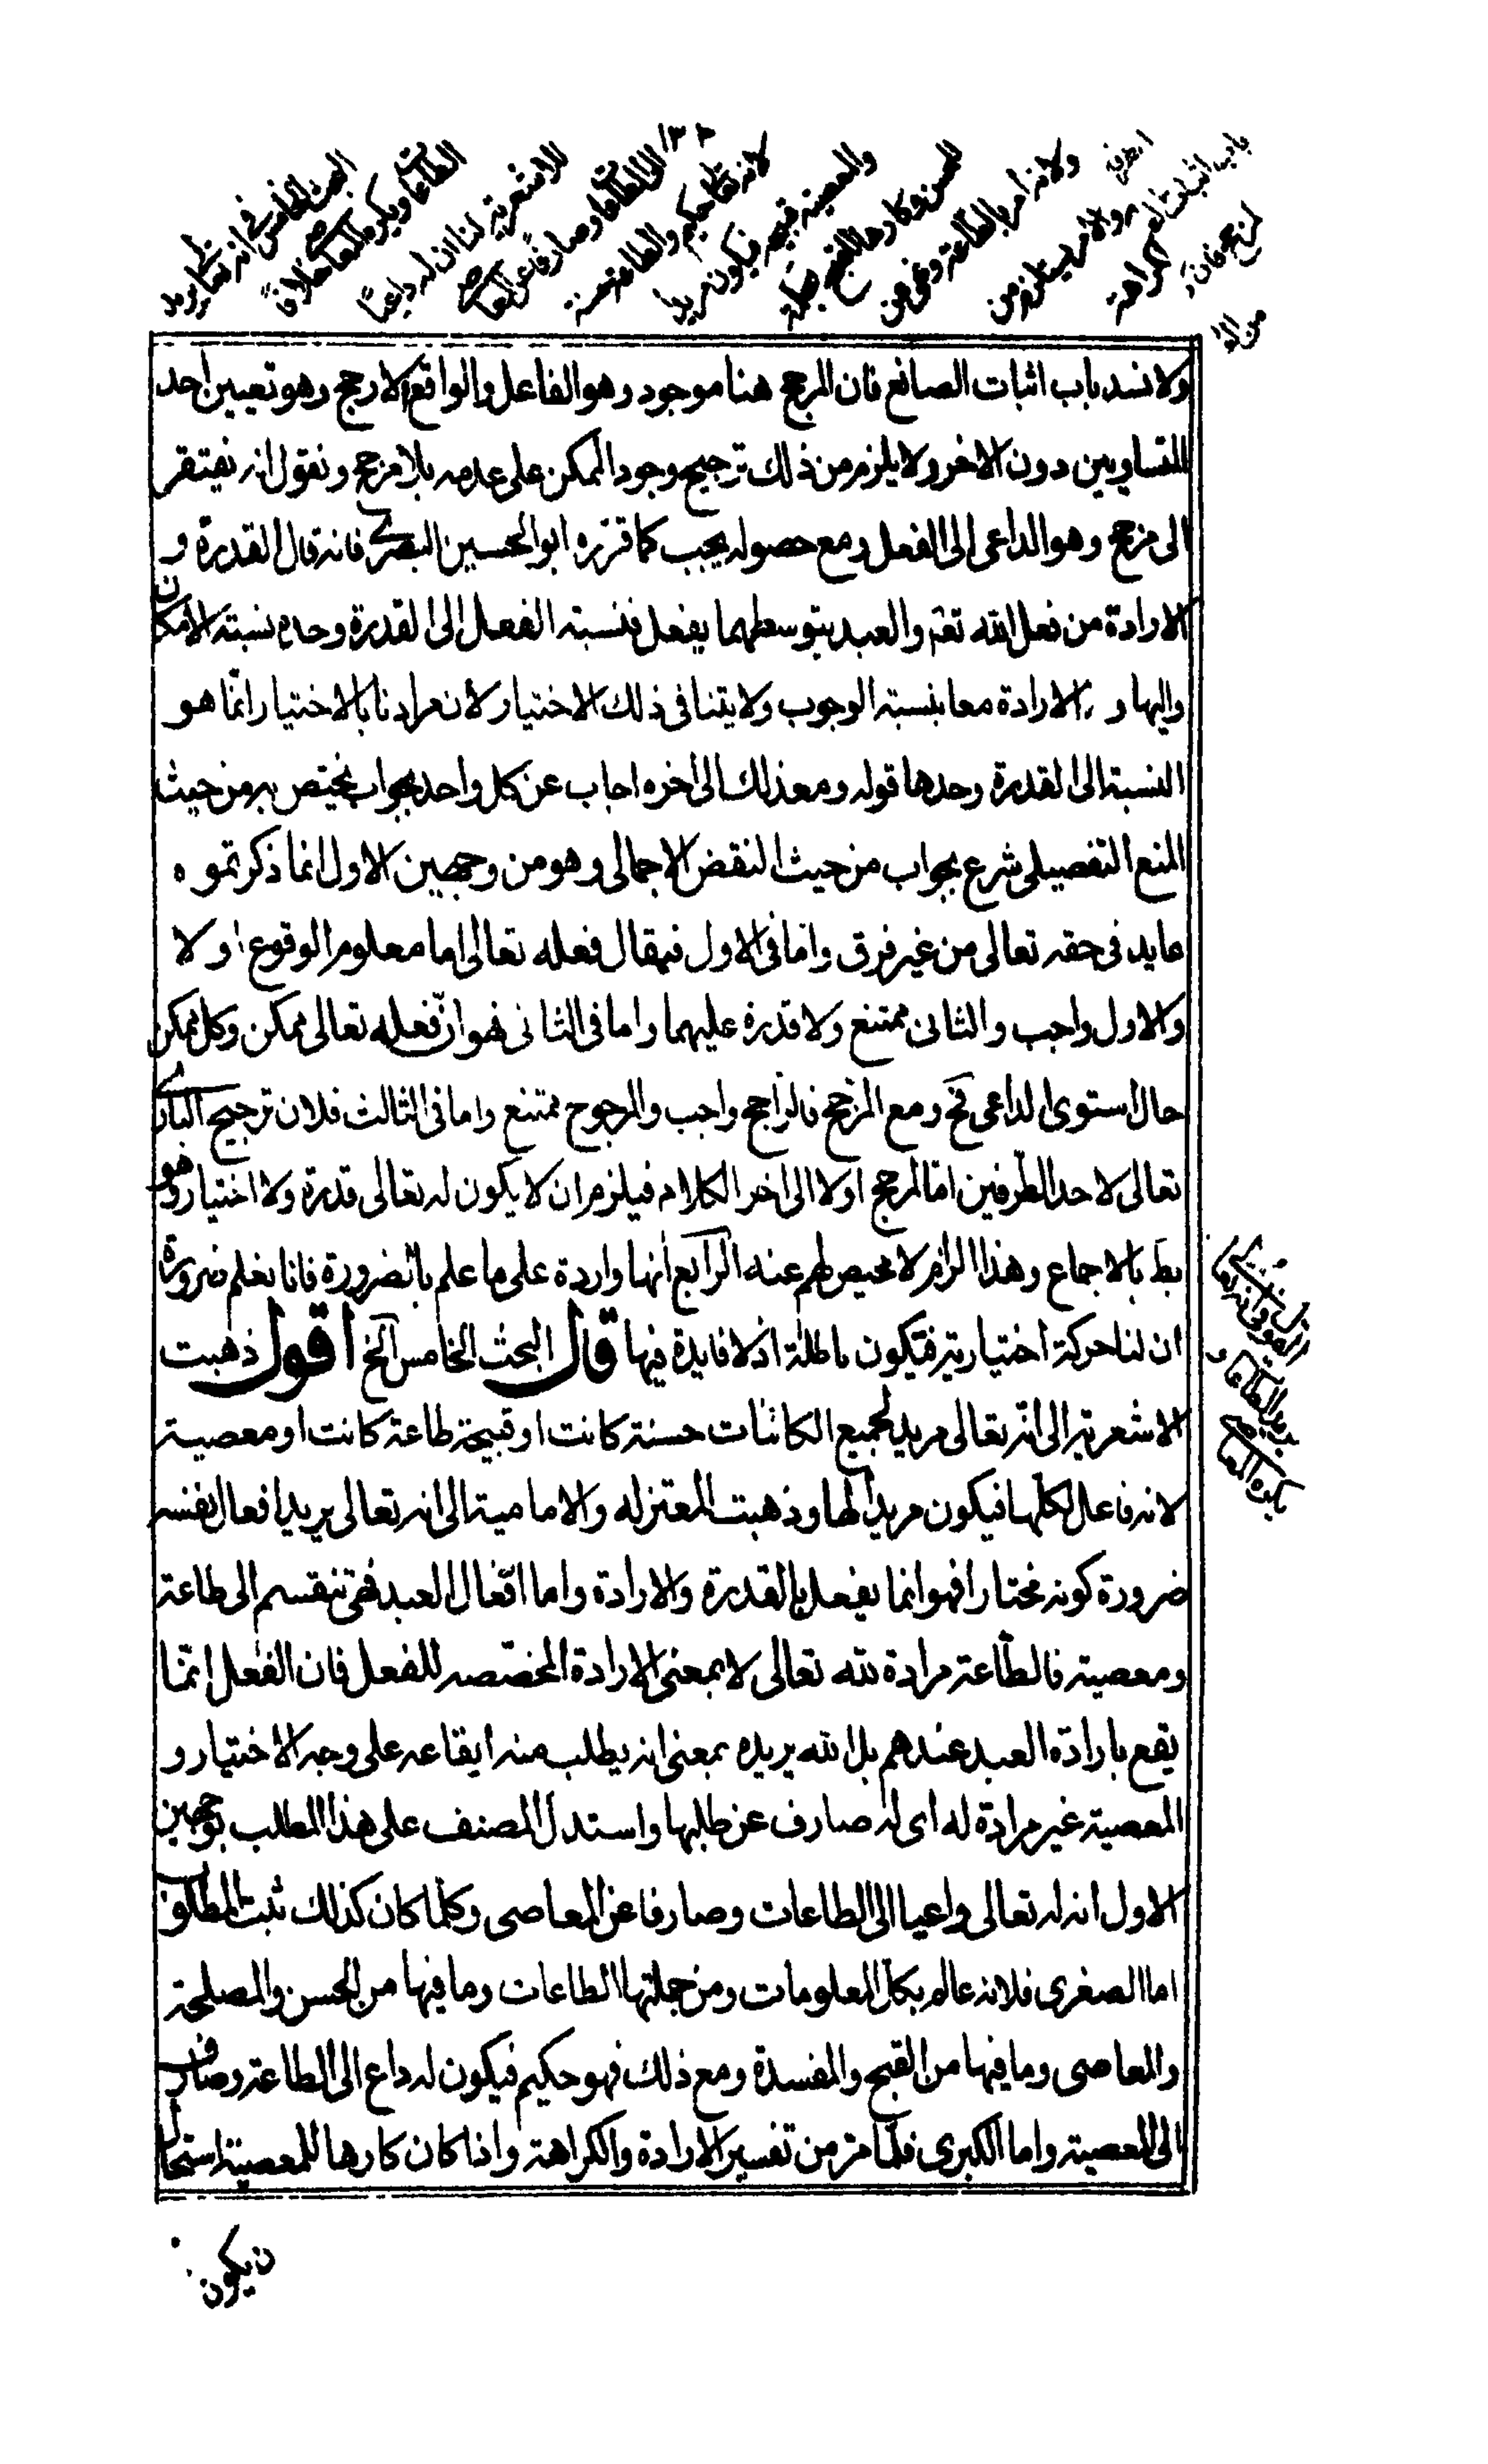 ١٣٢
البحث الخامس في انه تعالى يريد
الطاعات ويكره المعاصي خلافا
للاشعرية لنا ان له داعيا
الى الطاعات وصارفا عن المعاصي
لانه تعالى حكيم والطاعة حسنة
والمعصية قبيحة فيكون مريدا
للحسن وكارها للقبيح
ولانه امر بالطاعة ونهى عن
ولانسد باب اثبات الصانع فان المرجح هنا موجود وهو الفاعل والواقع الارجح وهو تعيين احد
المتساويين دون الاخر ولا يلزم من ذلك ترجيح وجود الممكن على عدمه بلا مرجح ونقول انه يفتقر
الى مرجح وهو الداعى الى الفعل ومع حصوله يجب كما قرره ابو الحسين البصرى فانه قال القدرة و
الارادة من فعل الله تعه والعبد بتوسطهما يفعل فنسبته الفعل الى القدرة وحده نسبته الامكان
واليها و الارادة معا بنسبته الوجوب ولا يتنافى ذلك الاختيار لان مرادنا بالاختيار انما هو
النسبة الى القدرة وحدها قوله ومع ذلك الى اخره اجاب عن كل واحد بجواب يختص به من حيث
المنع التفصيلى شرع بجواب من حيث النقض الاجمالى وهو من وجهين الاول انما ذكرتموه
عايد فى حقه تعالى من غير فرق واما فى الاول فيقال فعله تعالى اما معلوم الوقوع او لا
والاول واجب والثانى ممتنع ولا قدرة عليهما واما فى الثانى فهو ان فعله تعالى ممكن وكل ممكن
حال استوى الداعى تح ومع المرجح فالراجح واجب والمرجوح ممتنع واما فى الثالث فلان ترجيح البارى
تعالى لاحد الطرفين اما لمرجح اولا الى اخر الكلام فيلزم ان لا يكون له تعالى قدرة ولا اختيار وهو
بط بالاجماع وهذا الزام لا محيص لهم عنه الرابع انها واردة على ما علم بالضرورة فانا نعلم ضرورة
ان لنا حركة اختيارية فتكون باطلة اذ لا فايدة فيها قال البحث الخامس الخ اقول ذهبت
الاشعرية الى انه تعالى مريد لجميع الكائنات حسنة كانت او قبيحة طاعة كانت او معصية
لانه فاعل لكلها فيكون مريدا لها وذهبت المعتزله والامامية الى انه تعالى يريد افعال نفسه
ضرورة كونه مختارا فهو انما يفعل بالقدرة والارادة واما افعال العبد فهى تنقسم الى طاعة
ومعصية فالطاعة مرادة لله تعالى لا بمعنى الارادة المخصصه للفعل فان الفعل انما
يقع بارادة العبد عندهم بل الله يريده بمعنى انه يطلب منه ايقاعه على وجه الاختيار و
المعصية غير مرادة له اى له صارف عن طلبها واستدل المصنف على هذا المطلب بوجهين
الاول انه له تعالى داعيا الى الطاعات وصارفا عن المعاصى وكلما كان كذلك ثبت المطلوب
اما الصغرى فلانه عالم بكل المعلومات ومن جملتها الطاعات وما فيها من الحسن والمصلحة
والمعاصى وما فيها من القبح والمفسدة ومع ذلك فهو حكيم فيكون له داع الى الطاعة وصارف
الى المعصية واما الكبرى فلما مر من تفسير الارادة والكراهة واذا كان كارها للمعصية استحال
فيكون